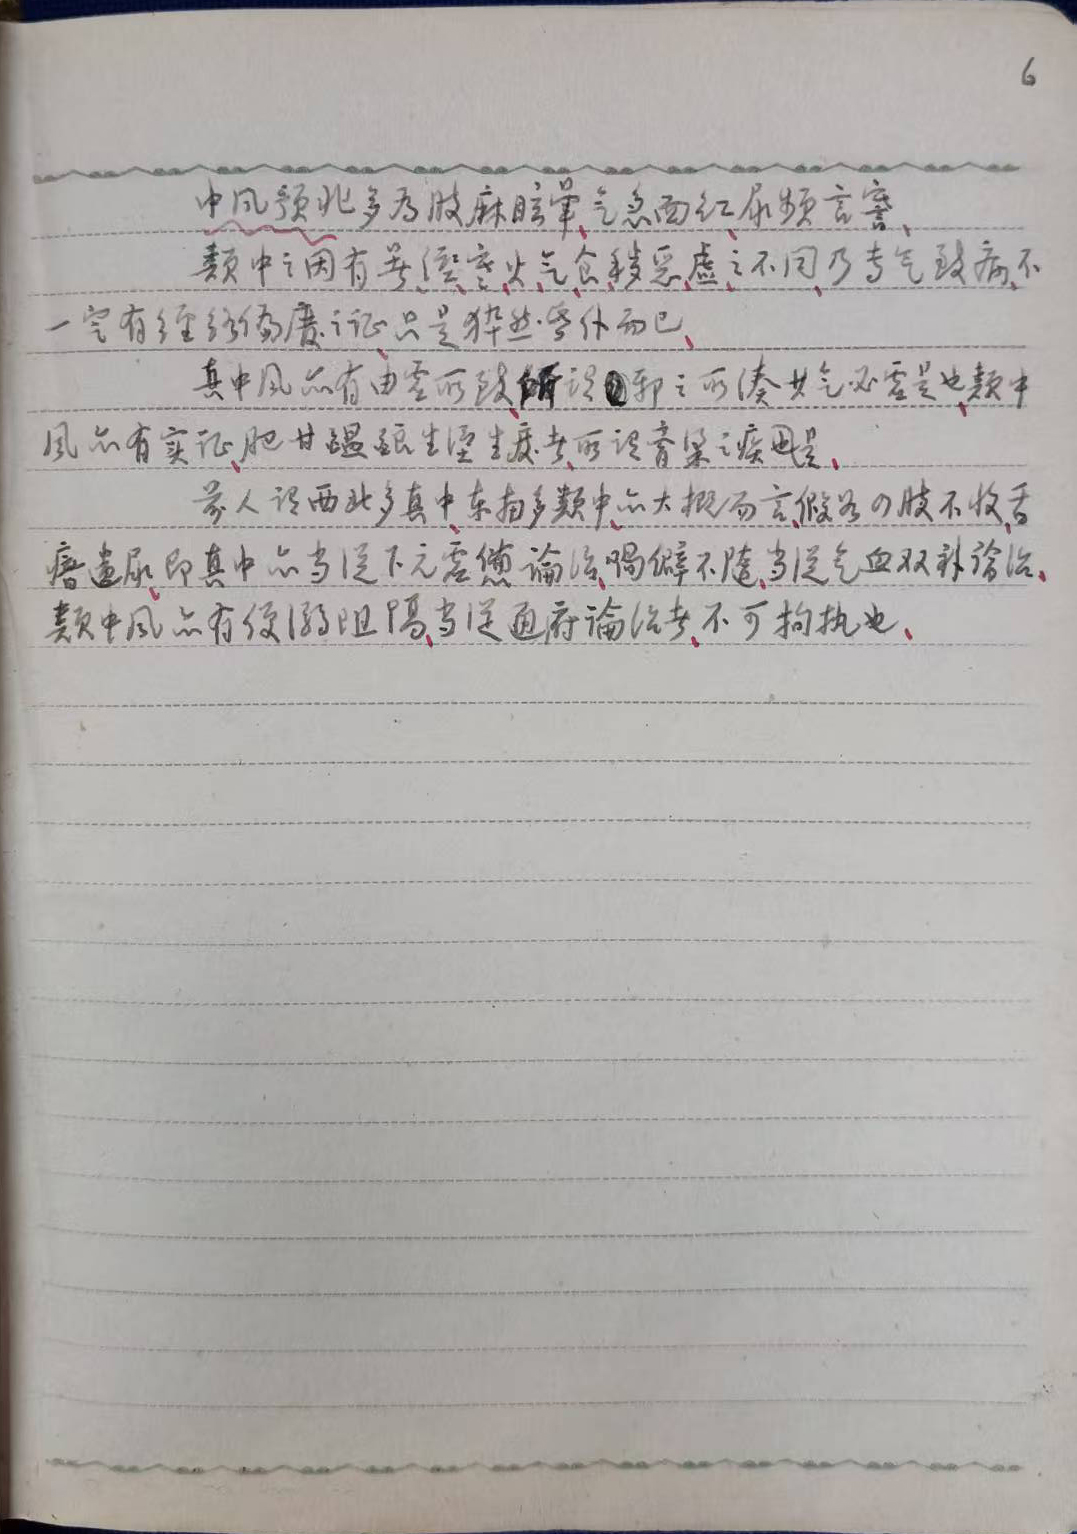 6
中风预兆多为肢麻眩晕、气急面红、尿频言謇、
类中之因有暑、湿、寒、火、气、食、秽恶、虚、之不同、乃专气致病、不
一定有经络偏废之证、只是猝然昏仆而已、
真中风亦有由虚所致、所谓邪之所凑其气必虚是也、类中
风亦有实证、肥甘醖酿生湿生痰者、所谓膏梁之疾是、
前人谓西北多真中、东南多类中、亦大概而言、假若四肢不收、舌
瘖遗尿、即真中亦当从下元虚惫论治、喎僻不遂、当从气血双补论治、
类中风亦有便溺阻隔、当从通府论治者、不可拘执也、